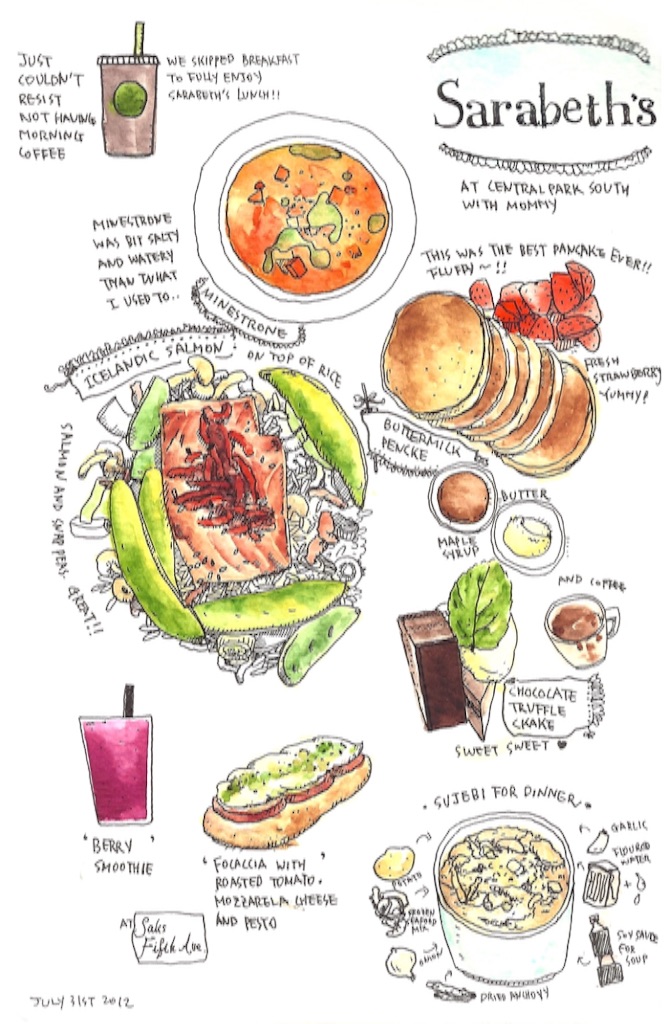 JUST
COULDN'T
RESIST
NOT HAVING
MORNING
COFFEE
WE SKIPPED BREAKFAST
TO FULLY ENJOY
SARABETH'S LUNCH!!
Sarabeth's
AT CENTRAL PARK SOUTH
WITH MOMMY
MINESTRONE
WAS BIT SALTY
AND WATERY
THAN WHAT
I USED TO..
MINESTRONE
THIS WAS THE BEST PANCAKE EVER!!
FLUFFY~!!
FRESH
STRAWBERRY
YUMMY!
ICELANDIC SALMON
ON TOP OF RICE
SALMON AND SNAP PEAS. GREAT!!
BUTTERMILK
PENCKE
MAPLE
SYRUP
BUTTER
AND COFFEE
CHOCOLATE
TRUFFLE
CKAKE
SWEET SWEET ♥
'BERRY
SMOOTHIE'
'FOCACCIA WITH'
ROASTED TOMATO.
MOZZARELA CHEESE
AND PESTO
AT
Saks
Fifth Ave.
• SUJEBI FOR DINNER •
POTATO
FROZEN
SEAFOOD
MIX
ONION
DRIED ANCHOVY
GARLIC
FLOURED
WATER
+
SOY SAUCE
FOR
SOUP
JULY 31ST 2012